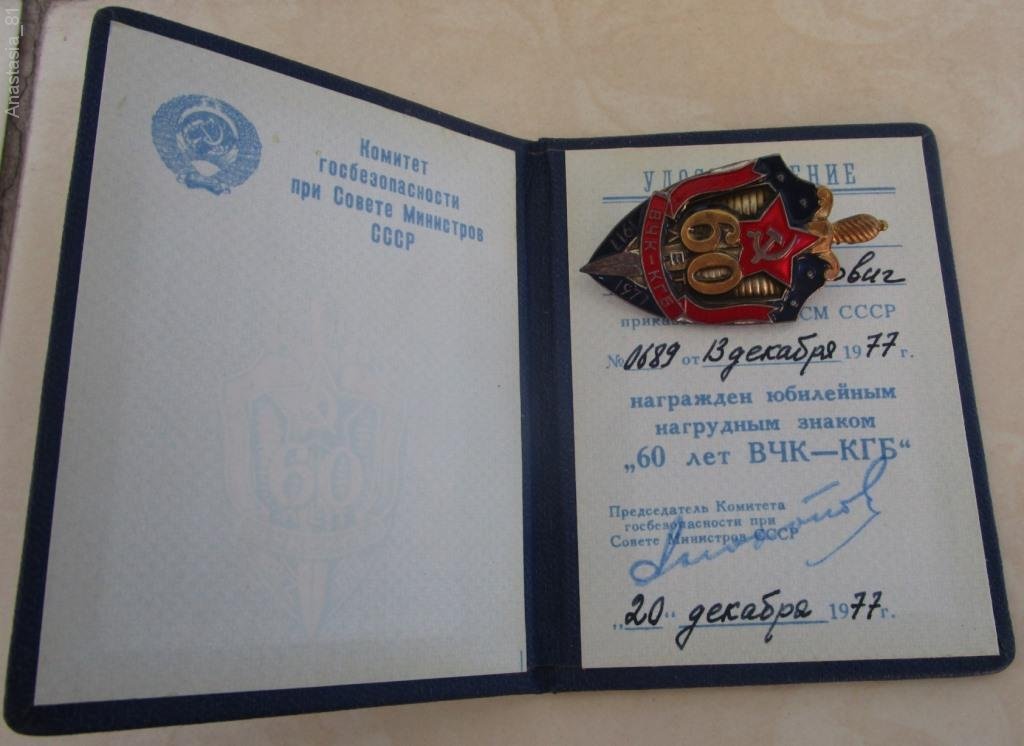 Anastasia_81
Комитет
госбезопасности
при Совете Министров
СССР
60
1917
ВЧК-КГБ
60
1977
СМ СССР
№ 0689 от 13 декабря 1977 г.
награжден юбилейным
нагрудным знаком
„60 лет ВЧК—КГБ“
Председатель Комитета
госбезопасности при
Совете Министров СССР
„20“ декабря 1977 г.